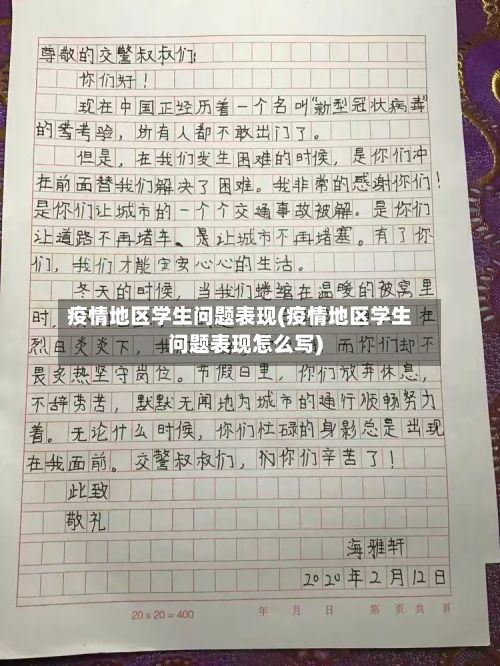 尊敬的交警叔叔们:
你们好!
现在中国正经历着一个名叫“新型冠状病毒”
的考验,所有人都不敢出门了。
但是,在我们发生困难的时候,是你们冲
在前面替我们解决了困难。我非常的感谢你们!
是你们让城市的一个个交通事故被解。是你们
让道路不再堵车、是让城市不再堵塞。有了你
们,我们才能安安心心的生活。
冬天的时候,当我们蜷缩在温暖的被窝里
时,
疫情地区学生问题表现(疫情地区学生
问题表现怎么写)
烈日炎炎下,我 而你们却不
畏炙热坚守岗位。节假日里,你们放弃休息,
不辞劳苦,默默无闻地为城市的通行顺畅努力
着。无论什么时候,你们忙碌的身影总是出现
在我面前。交警叔叔们,你们辛苦了!
此致
敬礼
海雅轩
2020年2月12日
20×20=400 年 月 日 第 页 共 页